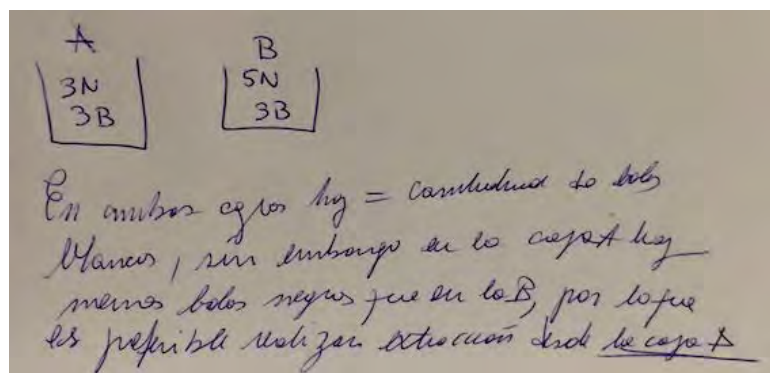 A B
3N 5N
3B 3B
En ambas cajas hay = cantidad de bolas
blancas, sin embargo en la caja A hay
menos bolas negras que en la B, por lo que
es preferible realizar extracción desde la caja A